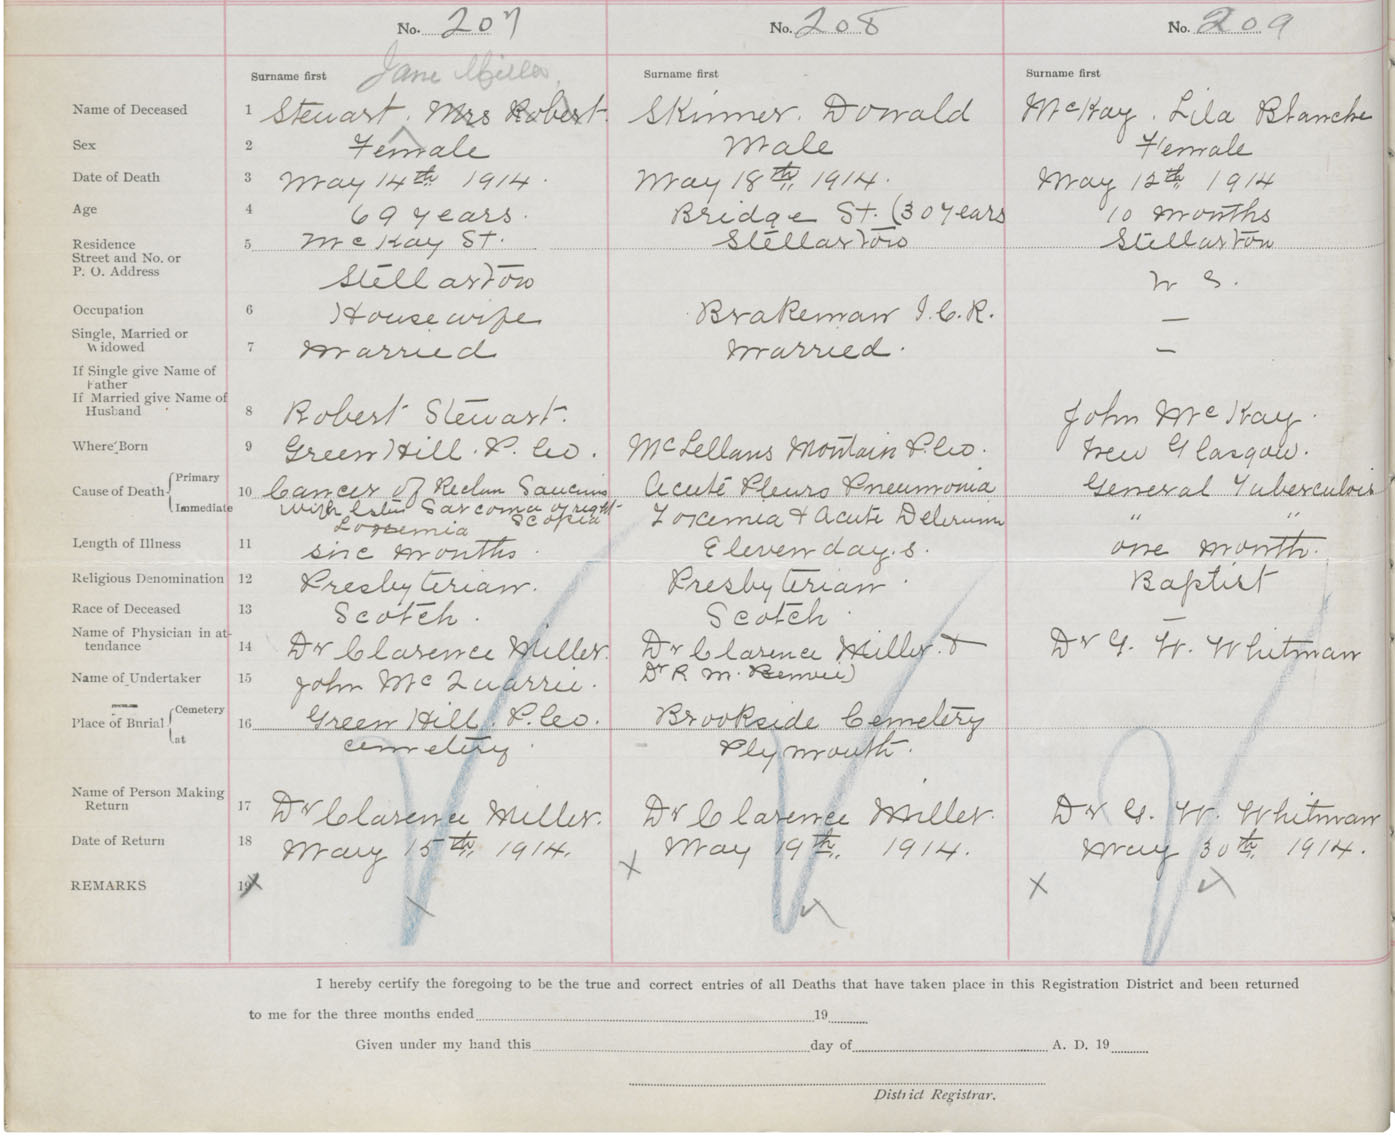 No. 207 No. 208 No. 209
Jane Miller
Surname first Surname first Surname first
Name of Deceased 1 Stewart. Mrs Robert. Skinner. Donald McKay. Lila Blanche
Sex 2 Female Male Female
Date of Death 3 May 14th 1914. May 18th 1914. May 12th 1914
Age 4 69 years. Bridge St. (30 years 10 months
Residence 5 McKay St. Stellarton Stellarton
Street and No. or
P. O. Address Stellarton N S.
Occupation 6 Housewife Brakeman I.C.R. —
Single, Married or
Widowed 7 Married Married. —
If Single give Name of
Father
If Married give Name of
Husband 8 Robert Stewart. John McKay.
Where Born 9 Green Hill. P. Co. McLellans Montain P. Co. New Glasgow.
Cause of Death Primary 10 Cancer of Acute Pleuro Pneumonia General Tuberculois
Immediate with Sarcoma of right Toxemia & Acute Delerium " "
Length of Illness 11 months. Eleven day.s. one month.
Religious Denomination 12 Presbyterian. Presbyterian. Baptist
Race of Deceased 13 Scotch. Scotch. —
Name of Physician in at-
tendance 14 Dr Clarence Miller. Dr Clarence Miller. & Dr G. W. Whitman
Name of Undertaker 15 John McQuarrie. Dr R. M.
Place of Burial Cemetery 16 Green Hill. P. Co. Brookside Cemetery
at cemetery. Plymouth.
Name of Person Making
Return 17 Dr Clarence Miller. Dr Clarence Miller. Dr G. W. Whitman
Date of Return 18 May 15th. 1914. May 19th. 1914. May 30th. 1914.
REMARKS 19 X X X
I hereby certify the foregoing to be the true and correct entries of all Deaths that have taken place in this Registration District and been returned
to me for the three months ended 19
Given under my hand this day of A. D. 19
District Registrar.